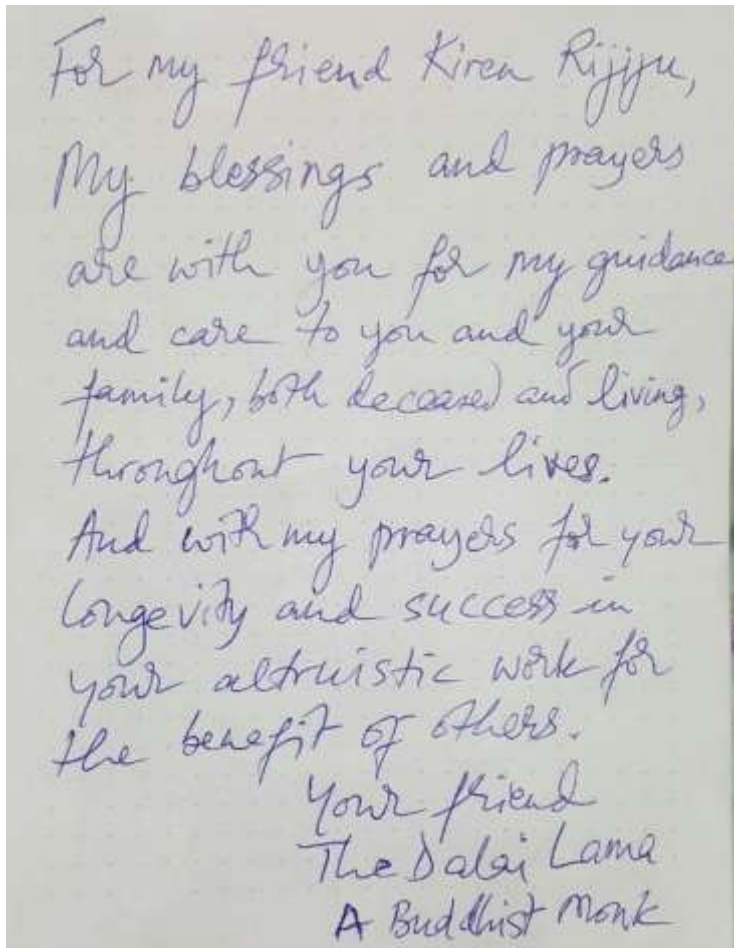 For my friend Kiren Rijiju,
My blessings and prayers
are with you for my guidance
and care to you and your
family, both deceased and living,
throughout your lives.
And with my prayers for your
longevity and success in
your altruistic work for
the benefit of others.
Your friend
The Dalai Lama
A Buddhist Monk